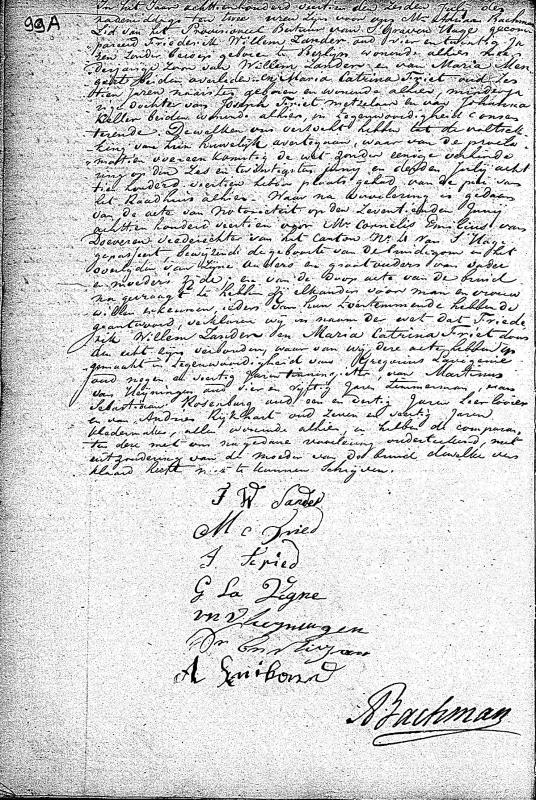 99A
In het Jaar achttienhonderd veertien den zesden July des
nademiddags ten twee uren zyn voor ons Mr. Adriaan Bachman
Lid van het Provisioneel Bestuur van S'Gravenhage gecom
pareerd Friederik Willem Zander oud drie en twentig Ja
ren zonder beroep geboren te Berlyn wonende alhier
derjarige zoon van Willem Zander en van Maria
beiden overleden en Maria Catrina Friet oud
tien Jaren naaister geboren en wonende alhier, minderja
rige dochter van Joseph Friet metzelaar en van Johanna
Keller beiden wonende alhier, in tegenwoordigheid consen
terende. Dewelken ons verzocht hebben tot de voltrek
king van hun huwelyk overtegaan, waar van de procla
matien overeenkomstig de wet zonder eenige verhinde
ring op den zes en twintigsten Juny en derden July acht
tien honderd veertien hebben plaats gehad van de puije van
het Raadhuis alhier. Waar na voorlezing is gedaan
van de acte van Notorieteit op den zeventienden Juny
achttien honderd veertien voor Mr. Cornelis Emilius van
vrederechter van het Canton No. 4 van S'Hage
gepasseert, bewyzende de geboorte van de bruidegom en het
overlyden van zyne ouders en grootouders van vader
en moeders zyde, en van de Doop acte van de bruid
na gevraagt te hebben of zy elkander voor man en vrouw
willen erkennen, ieders van hun toestemmende hebbende
geantwoord, verklaren wy in naam der wet dat Friede
rik Willem Zander en Maria Catrina Friet door
den echt zyn verbonden, waar van wy deze acte hebben op
gemaakt in tegenwoordigheid van Gregorius
oud negen en veertig Jaren van Martinus
van Vleyningen oud vier en vyftig Jaren Timmerman, van
Sebastiaan Rosenburg oud een en dertig Jaren Leerlooier
en van Andries oud zeven en veertig Jaren
kledermaker, allen wonende alhier, en hebben de comparan
ten deze met ons na gedane voorlezing onderteekend, met
uitzondering van de moeder van de bruid dewelke ver
klaard heeft niet te kunnen schryven.
F W Sander
M C Fried
J Fried
G La Vigne
A
ABachman